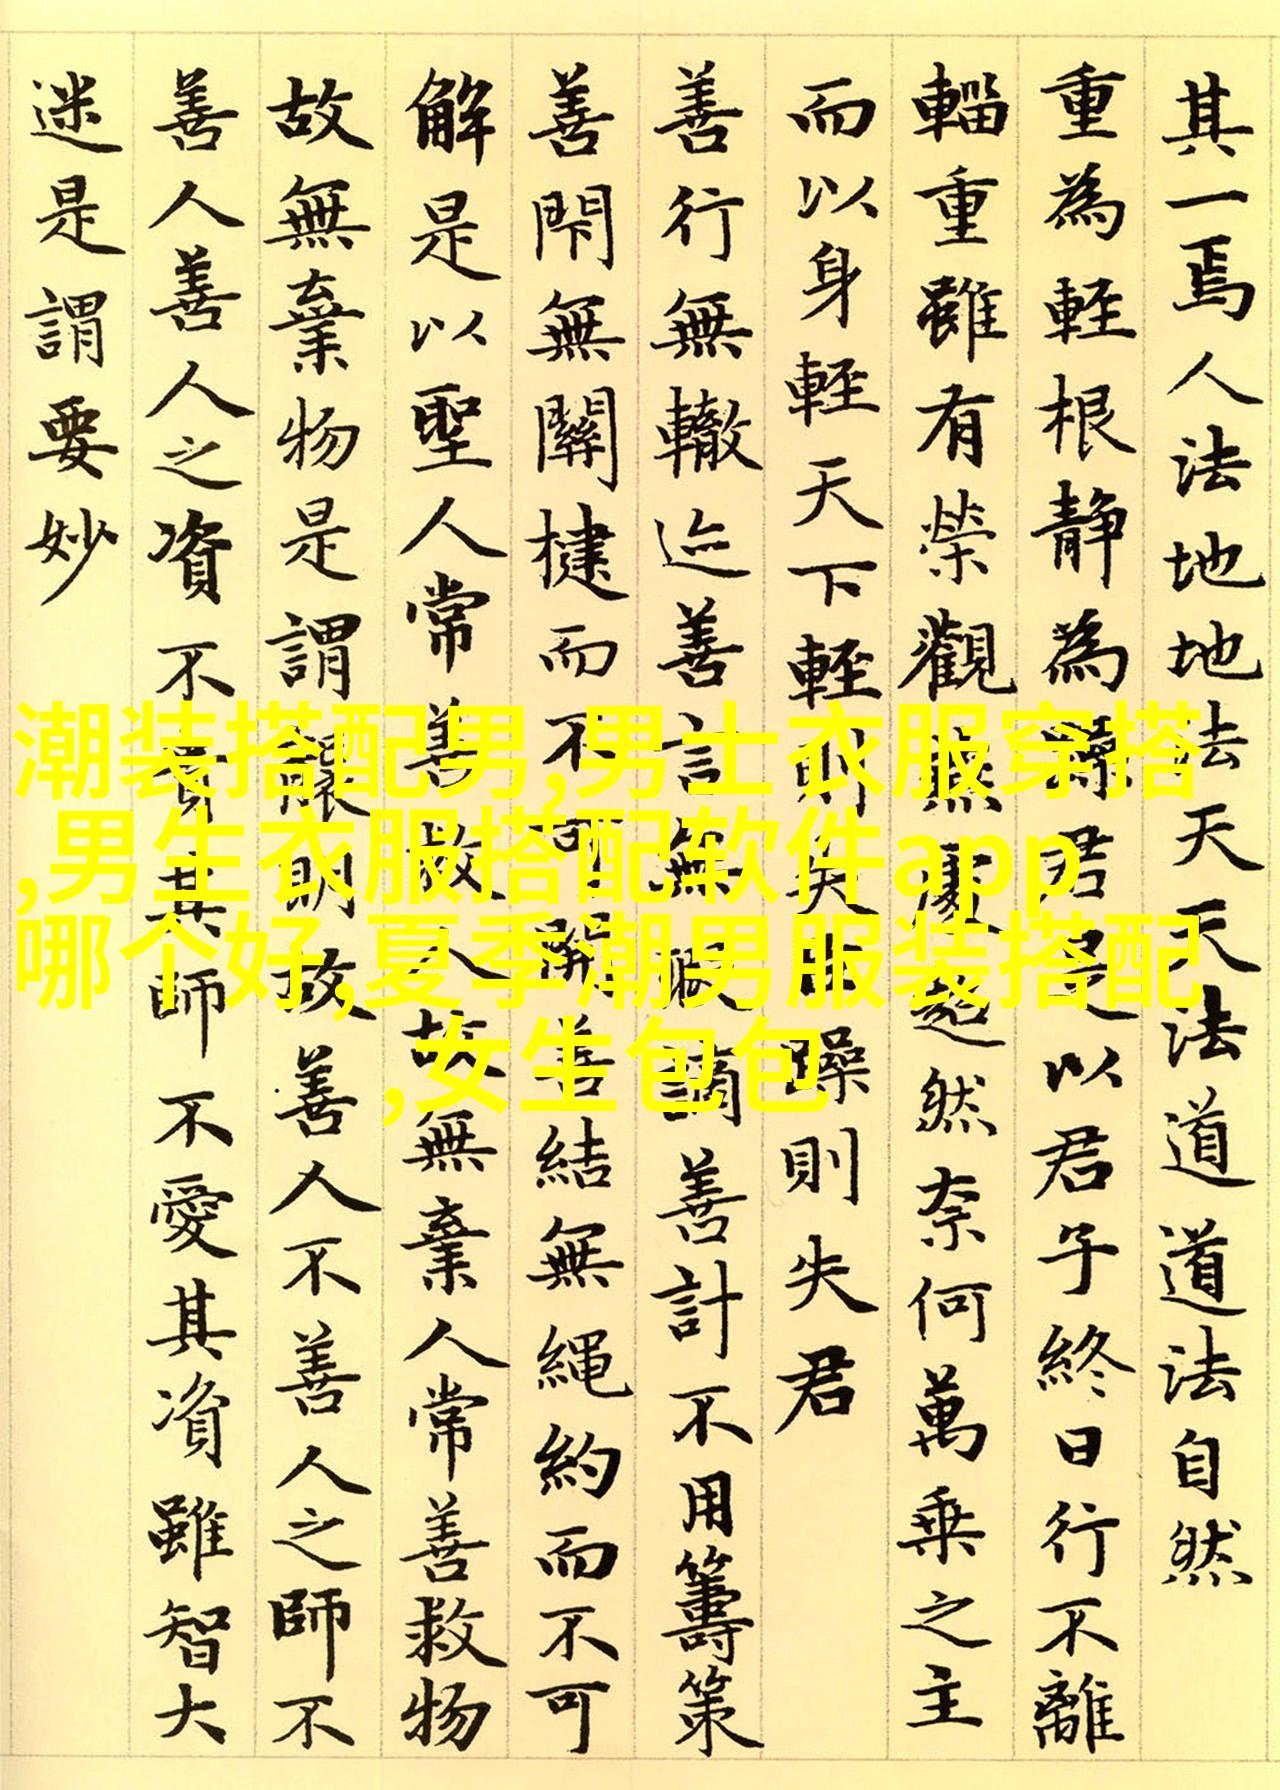 其一焉人法地地法天天法道道法自然
重為輕根靜為躁君是以君子終日行不離
輜重雖有榮觀燕處超然奈何萬乘之主
而以身輕天下輕則失躁則失君
善行無轍迹善言無瑕謫善計不用籌策
善閇無關楗而不可開善結無繩約而不可
解是以聖人常善救人故無棄人常善救物
故無棄物是謂襲明故善人不善人之師不
善人善人之資不貴其師不愛其資雖智大
迷是謂要妙
潮装搭配男,男士衣服穿搭
,男生衣服搭配软件app
哪个好,夏季潮男服装搭配
,女生包包